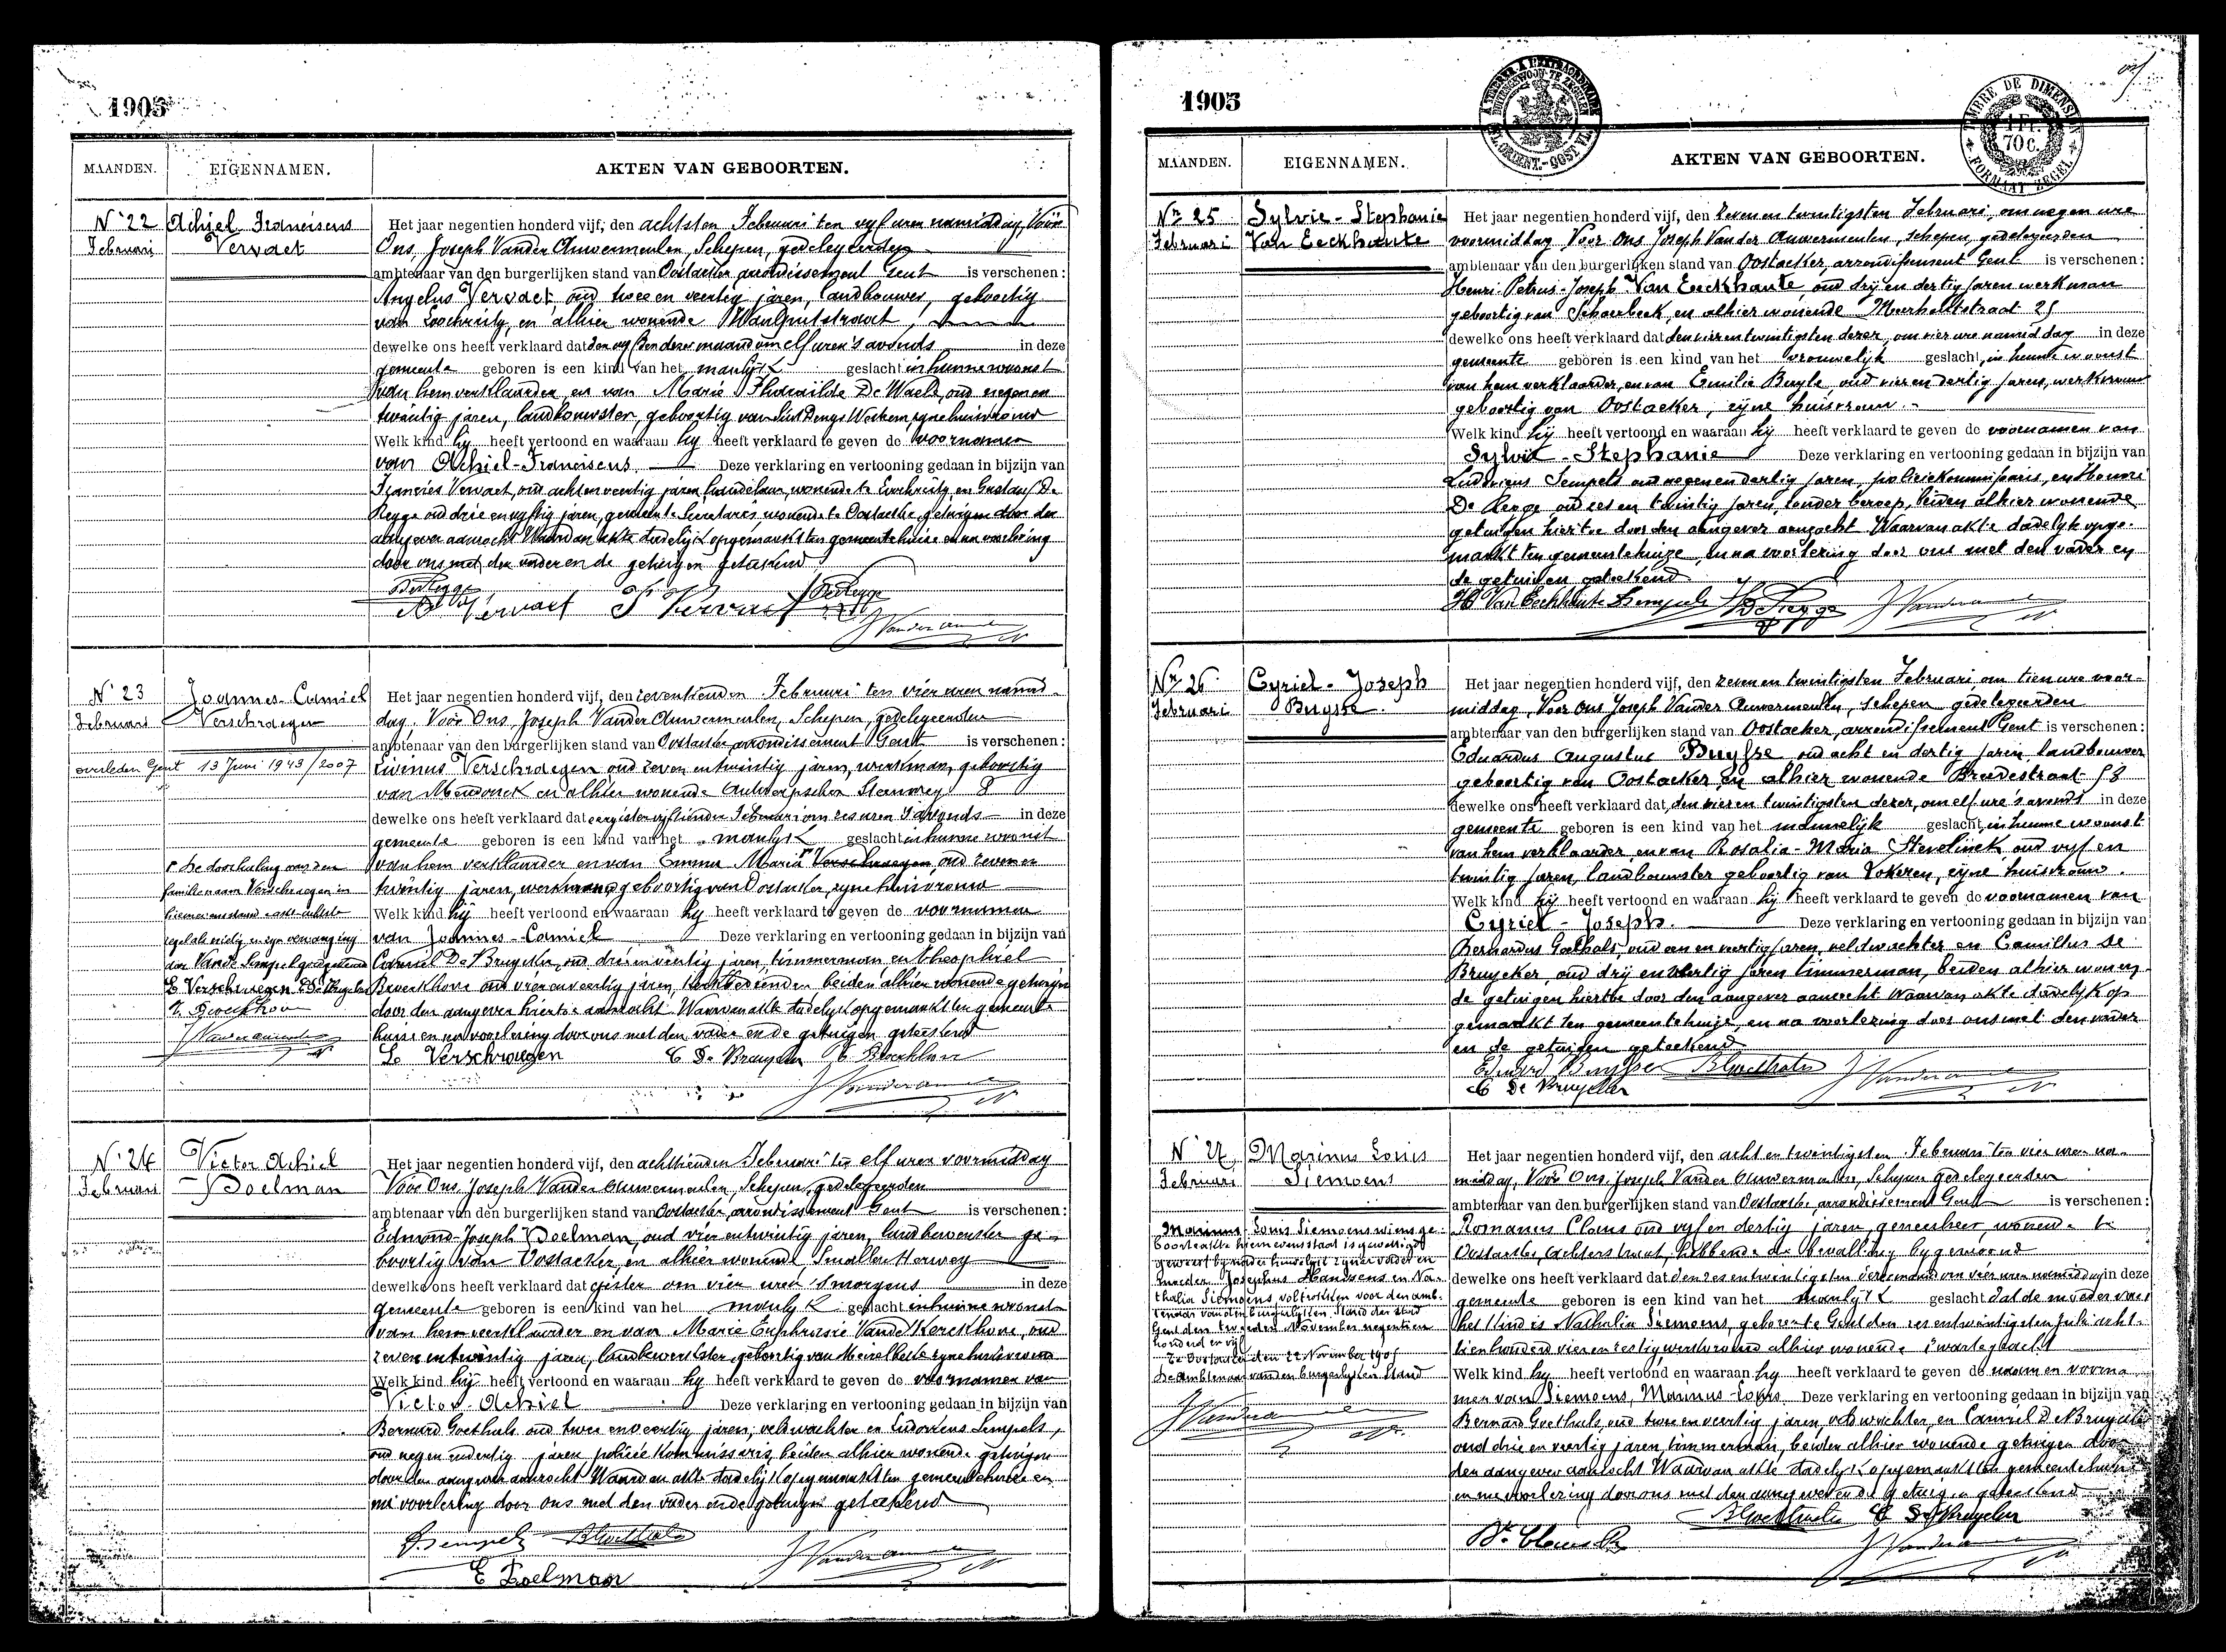 1905
MAANDEN. EIGENNAMEN. AKTEN VAN GEBOORTEN.
N° 22
Februari
Achiel Franciscus
Vervaet
Het jaar negentien honderd vijf, den achtsten Februari ten vyf uren namiddag, Vóór
Ons, Joseph Vander Auwermeulen, Schepen, gedelegeerden
ambtenaar van den burgerlijken stand van Oostacker arrondissement Gent is verschenen:
Angelus Vervaet, oud twee en veertig jaren, landbouwer, geboortig
van Loochristy, en alhier wonende
dewelke ons heeft verklaard dat den dezer maand om elf uren 's avonds in deze
gemeente geboren is een kind van het manlijk geslacht in hunne woonst
van hem verklaarder, en van Marie De Waele, oud negen en
twintig jaren, landbouwster, geboortig van Sint Denys Westrem, zyne huisvrouw
Welk kind hy heeft vertoond en waaraan hy heeft verklaard te geven de voornamen
van Achiel-Franciscus. Deze verklaring en vertooning gedaan in bijzijn van
Francies Vervaet, oud acht en veertig jaren, handelaar, wonende te en Gustaaf De
Regge oud drie en vyftig jaren, gemeente Secretaris, wonende te Oostacker, getuigen door den
aangever aanzocht Waarvan akte dadelyk opgemaakt ten gemeentehuize en na voorlezing
door ons met den vader en de getuigen geteekend
A. Vervaet F Vervaet
N° 23
Februari
Joannes-Camiel
Verschraegen
overleden Gent 13 Juni 1943/2007
Het jaar negentien honderd vijf, den zeventienden Februari ten vier uren namid-
dag. Vóór Ons, Joseph Vander Auwermeulen, Schepen, gedelegeerden
ambtenaar van den burgerlijken stand van Oostacker, arrondissement Gent is verschenen:
Livinus Verschraegen oud zeven en twintig jaren, werkman, geboortig
van Mendonck en alhier wonende Antwerpschen Steenweg 8
dewelke ons heeft verklaard dat eergisteren vyftienden Februari om zes uren 's avonds in deze
gemeente geboren is een kind van het manlyk geslacht in hunne woonst
van hem verklaarder en van Emma Maria Verschraegen, oud zeven en
twintig jaren, geboortig van Oostacker, zyne huisvrouw
Welk kind hij heeft vertoond en waaraan hy heeft verklaard te geven de voornamen
van Joannes-Camiel Deze verklaring en vertooning gedaan in bijzijn van
Camiel De Bruycker, oud drie en veertig jaren, timmerman, en Theophiel
Broeckhove oud vier en veertig jaren, beiden alhier wonende getuigen
door den aangever hiertoe aanzocht. Waarvan akte dadelyk opgemaakt ten gemeente-
huize en na voorlezing door ons met den vader en de getuigen geteekend
De doorhaling van den
familienaam Verschraegen in
L. Verschraegen C De Bruycker
L. Verschraegen C De Bruycker
N° 24
Februari
Victor Achiel
Poelman
Het jaar negentien honderd vijf, den achttienden Februari ten elf uren voormiddag
Vóór Ons, Joseph Vander Auwermeulen, Schepen, gedelegeerden
ambtenaar van den burgerlijken stand van Oostacker, arrondissement Gent is verschenen:
Edmond-Joseph Poelman, oud vier en twintig jaren, landbewerker ge-
boortig van Oostacker, en alhier wonende, Smallen Heerweg
dewelke ons heeft verklaard dat gister om vier uren 's morgens in deze
gemeente geboren is een kind van het manlyk geslacht in hunne woonst
van hem verklaarder en van Marie Euphrasie Vande Kerckhove, oud
zeven en twintig jaren, landbewerkster, geboortig van Meirelbeke zyne huisvrouw
Welk kind hij heeft vertoond en waaraan hy heeft verklaard te geven de voornamen van
Victor-Achiel Deze verklaring en vertooning gedaan in bijzijn van
Bernard Goethals oud twee en veertig jaren, veldwachter en Ludovicus Sempels,
oud negen en dertig jaren policie kommissaris, beiden alhier wonende getuigen
door den aangever aanzocht Waarvan akte dadelyk opgemaakt ten gemeentehuize en
na voorlezing door ons met den vader en de getuigen geteekend
Sempels BGoethals
E Poelman
1905
TIMBRE DE DIMENSION
1 Fr.
70 c.
FORMAAT ZEGEL
MAANDEN. EIGENNAMEN. AKTEN VAN GEBOORTEN.
Nr 25
Februari
Sylvie-Stephanie
Van Eeckhaute
Het jaar negentien honderd vijf, den zeven en twintigsten Februari, om negen ure
voormiddag Voor ons Joseph Vander Auwermeulen, schepen, gedelegeerden
ambtenaar van den burgerlijken stand van Oostacker, arrondissement Gent is verschenen:
Henri-Petrus-Joseph Van Eeckhaute, oud drij en dertig jaren werkman
geboortig van Schaerbeek, en alhier wonende Meerhoutstraat 25
dewelke ons heeft verklaard dat den vier en twintigsten dezer, om vier ure namiddag in deze
gemeente geboren is een kind van het vrouwelijk geslacht, in hunne woonst
van hem verklaarder, en van Emilie Buyle oud vier en dertig jaren, werkvrouw
geboortig van Oostacker, zijne huisvrouw.
Welk kind hij heeft vertoond en waaraan hij heeft verklaard te geven de voornamen van
Sylvie-Stephanie Deze verklaring en vertooning gedaan in bijzijn van
Ludovicus Sempels oud negen en dertig jaren, policiekommissaris, en Henri
De Regge oud zes en twintig jaren, zonder beroep, beiden alhier wonende
getuigen hiertoe door den aangever aanzocht Waarvan akte dadelyk opge-
maakt ten gemeentehuize, en na voorlezing door ons met den vader en
de getuigen geteekend
H Van Eeckhaute Sempels H De Regge
Nr 26
Februari
Cyriel-Joseph
Buysse.
Het jaar negentien honderd vijf, den zeven en twintigsten Februari om tien ure voor-
middag, Voor ons Joseph Vander Auwermeulen, schepen gedelegeerden
ambtenaar van den burgerlijken stand van Oostacker, arrondissement Gent is verschenen:
Eduardus Augustus Buysse oud acht en dertig jaren, landbouwer
geboortig van Oostacker, en alhier wonende Breedestraat 58
dewelke ons heeft verklaard dat, den vier en twintigsten dezer, om elf ure 's avonds in deze
gemeente geboren is een kind van het mannelijk geslacht, in hunne woonst
van hem verklaarder, en van Rosalia-Maria Stevelinck oud vyf en
twintig jaren, landbouwster geboortig van Lokeren, zijne huisvrouw.
Welk kind hij heeft vertoond en waaraan hij heeft verklaard te geven de voornamen van
Cyriel-Joseph. Deze verklaring en vertooning gedaan in bijzijn van
Bernardus Goethals, oud en veertig jaren, veldwachter en Camillus De
Bruycker, oud drij en veertig jaren timmerman, beiden alhier wonen-
de getuigen hiertoe door den aangever aanzocht waarvan akte dadelyk op
gemaakt ten gemeentehuize, en na voorlezing door ons met den vader
en de getuigen geteekend
Eduard Buysse BGoethals
C De Bruycker
N° 27
Februari
Marinus Louis
Siemoens
Het jaar negentien honderd vijf, den acht en twintigsten Februari ten vier uren na-
middag, Vóór Ons, Joseph Vander Auwermeulen, Schepen gedelegeerden
ambtenaar van den burgerlijken stand van Oostacker, arrondissement Gent is verschenen:
Romanus Claeus oud vyf en dertig jaren, geneesheer, wonende te
Oostacker, Achterstraat, hebbende de bevalling bygewoond
dewelke ons heeft verklaard dat den zes en twintigsten dezer maand om vier uren namiddag in deze
gemeente geboren is een kind van het manlijk geslacht dat de moeder van
het kind is Nathalia Siemoens, geboren te Gent den zes en twintigsten Juli acht-
tien honderd vier en zestig werkvrouw alhier wonende Zwartegracht
Welk kind hy heeft vertoond en waaraan hy heeft verklaard te geven de naam en voorna-
men van Siemoens, Marinus-Louis Deze verklaring en vertooning gedaan in bijzijn van
Bernard Goethals, oud twee en veertig jaren, veldwachter, en Camiel De Bruycker
oud drie en veertig jaren, timmerman, beiden alhier wonende getuigen door
den aangever aanzocht Waarvan akte dadelyk opgemaakt ten gemeentehuize
en na voorlezing door ons met den aangever en de getuigen geteekend
Marinus Louis Siemoens wiens ge-
boorteakte hiernevenstaat is gewettigd
geweest by nader huwelijk zyner vader en
moeder Josephus Manssens en Na-
thalia Siemoens voltrokken voor den amb-
tenaar van den burgerlyken Stand der stad
Gent den tweeden November negentien
honderd en vijf
Te Oostacker den 22 November 1905
De Ambtenaar van den burgerlyken Stand
BGoethals C De Bruycker
Dr Claeus R